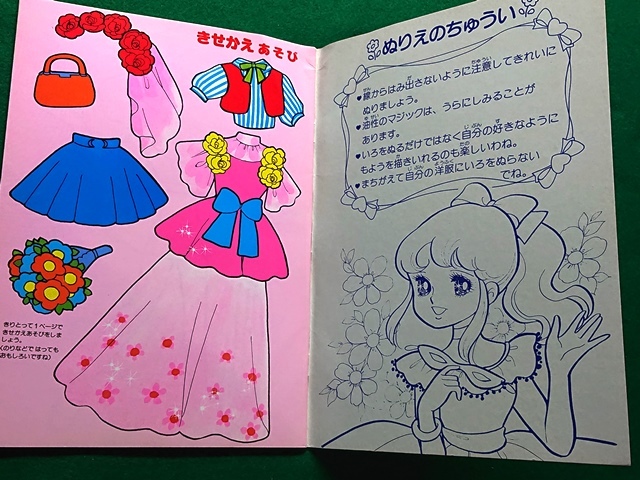 きせかえあそび
きりとって1ページで
きせかえあそびをしま
しょう。
(のりなどではっても
おもしろいですね)
ぬりえのちゅうい
♥線からはみ出さないように注意してきれいに
ぬりましょう。
♥油性のマジックは、うらにしみることが
あります。
♥いろをぬるだけではなく自分の好きなように
もようを描きいれるのも楽しいわね。
♥まちがえて自分の洋服にいろをぬらない
でね。